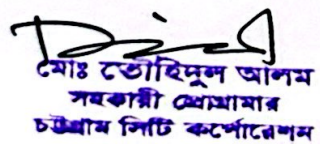 মোঃ তৌহিদুল আলম
সহকারী প্রোগ্রামার
চট্টগ্রাম সিটি কর্পোরেশন